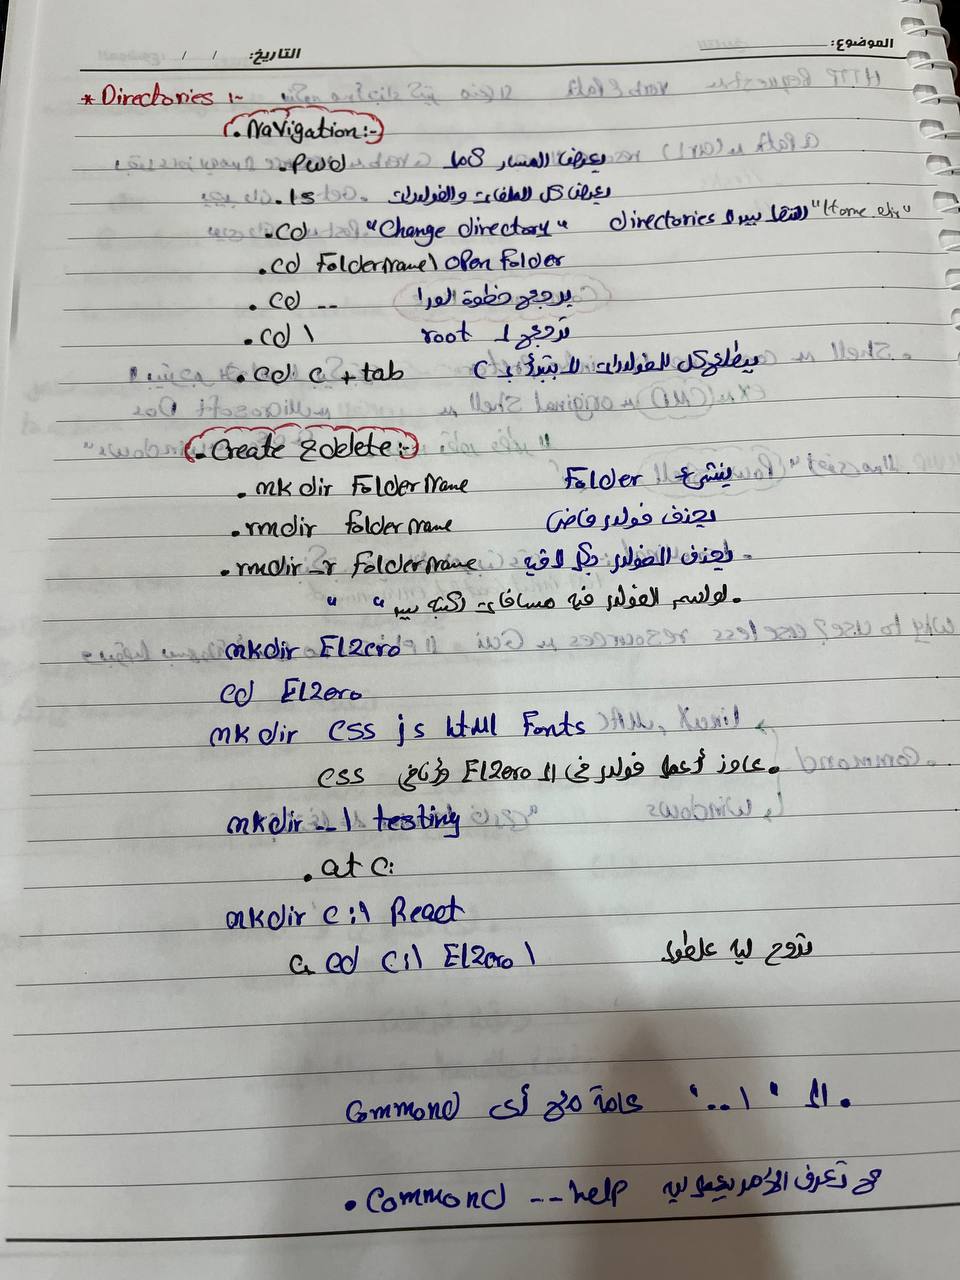 الموضوع:
التاريخ: / /
* Directories :-
. Navigation:-
.Pwd يعرض المسار
.ls يعرض كل الملفات والفولدرات
.cd "Change directory" التنقل بين ال directories "Home dir"
.cd Foldername\ open folder
.cd .. يرجع خطوة لورا
.cd \ ترجع ل root
.cd c + tab يطلع كل الفولدرات تبتدأ ب C
. Create & delete:-
.mkdir Foldername ينشئ Folder
.rmdir foldername يحذف فولدر فاضي
.rmdir -r foldername يحذف الفولدر بكل فيه
.لو اسم الفولدر فيه مسافات اكتبه بين " "
mkdir Elzero
cd Elzero
mkdir css js html Fonts
.عاوز أعمل فولدر في ال Elzero وأنا في css
mkdir ..\ testing
.at c:
mkdir c:\ React
cd c:\ Elzero \ تروح ليه علطول
.ال "..\" عامة مع أي Command
.Command --help تعرف الأمر بيعمل ايه